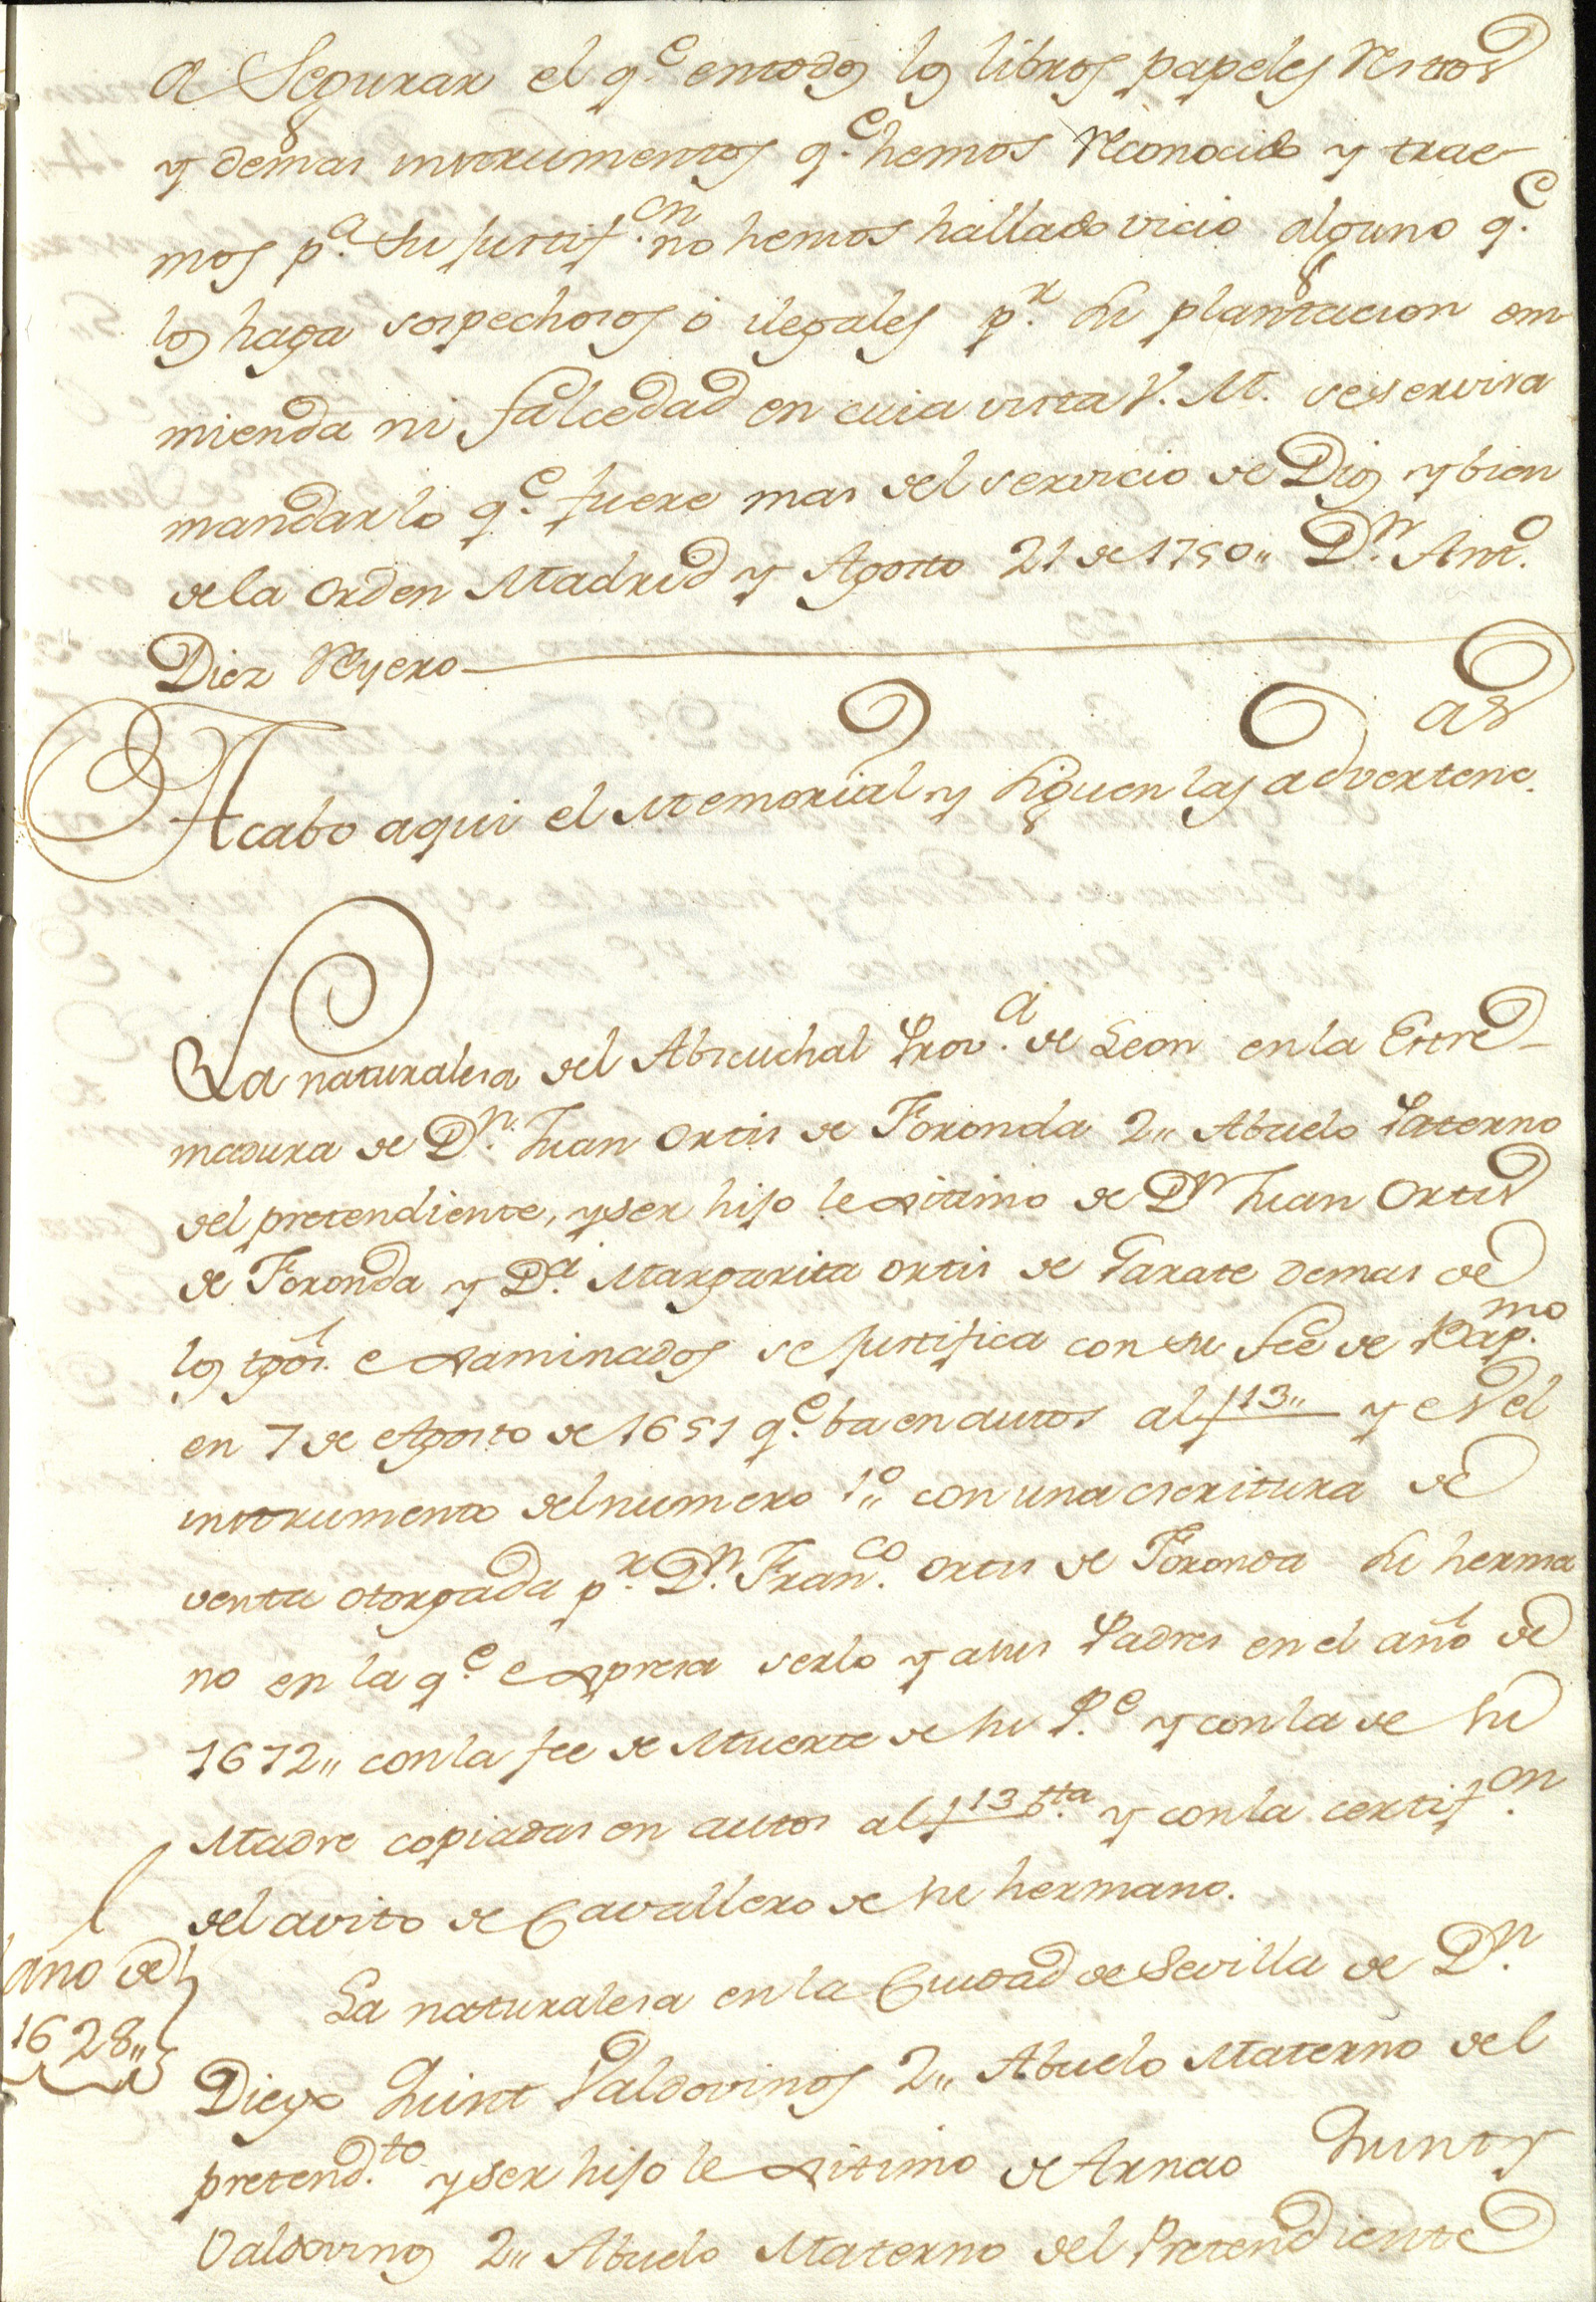 a Segurar el q.e en todos los libros papeles Restos
y demas instrumentos q.e hemos Reconocido y trae-
mos p.a su justif.cn no hemos hallado vicio alguno q.e
los haga sospechosos o ilegales p.r su plantacion en-
mienda ni falcedad en cuia vista V. M. se servira
mandar lo q.e fuere mas del servicio de Dios y bien
de la orden Madrid y Agosto 21 de 1750„ D.n Ant.o
Diez Reyero
Acabo aqui el Memorial y siguen las advertenc.as
La naturalesa del Abscuchal Prov.a de Leon en la Estre-
madura de D.n Juan Ortis de Foronda 2„ Abuelo Paterno
del pretendiente, y ser hijo lexitimo de Dn Juan Ortis
de Foronda y D.a Margarita ortis de Garate demas de
los tgos. examinados se justifica con su fee de Bap.mo
en 7 de Agosto de 1651 q.e ba en autos al f 113„ y es el
instrumento del numero 1„o con una escritura de
venta otorgada p.r D.n Fran.co ortis de Foronda su herma
no en la q.e expresa serlo y a sus Padres en el año de
1672„ con la fee de Muerte de su P.e y con la de su
Madre copiadas en autos al f 113 bta y con la certif.on
del avito de Cavallero de su hermano.
año de
1628„
La naturalesa en la Ciudad de Sevilla de D.n
Diego Quint Valdovinos 2„ Abuelo Materno del
pretend.to y ser hijo lexitimo de Arnao Quint y
Valdovinos 2„ Abuelo Materno del Pretendiente